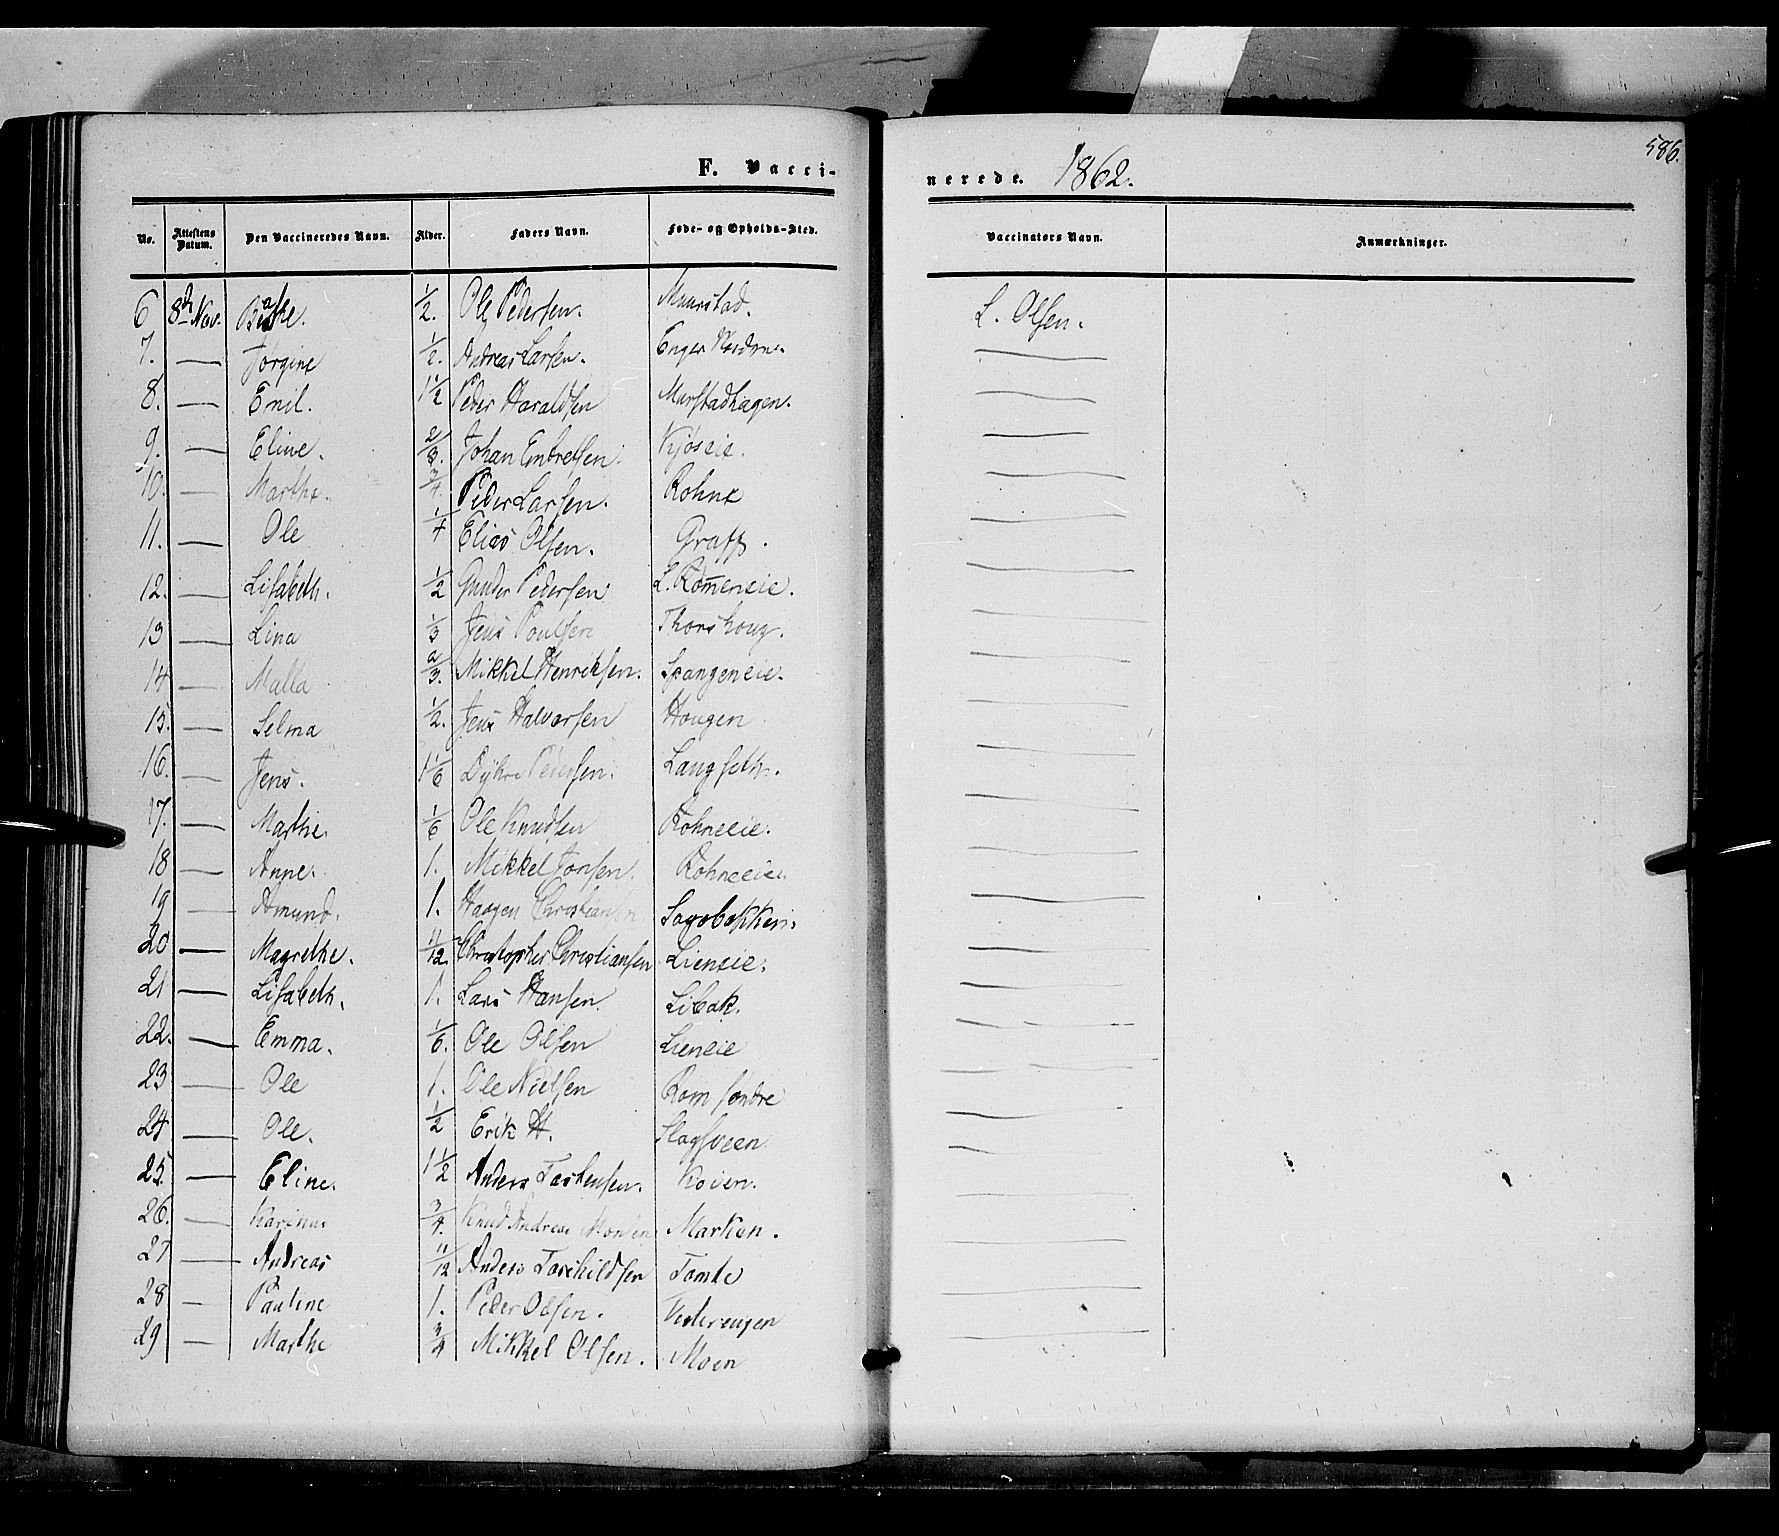 586.
F. Vacci-
nerede. 1862.
No. Attestens Datum. Den Vaccineredes Navn. Alder. Faders Navn. Føde- og Opholds-Sted. Vaccinators Navn. Anmærkninger.
6 8d Nov. 1/2. Ole Pedersen. Muurstad. L. Olsen.
7. — Jørgine 1/2. Andreas Larsen. Enger —
8. — Emil. 1 1/2 Peder Haraldsen Murstadhagen. —
9. — Eline. 2/3. Johan Embretsen. Kjøseie. —
10. — Marthe. 3/4. Peder Larsen. Rohne —
11. — Ole 1/4 Elias Olsen. Graff. —
12. — Lisabeth. 1/2 Gunder Pedersen L. Rom̄eneie. —
13 — Lina 1/3 Jens Poulsen Thorshoug. —
14 — Malla 2/3. Mikkel Henriksen. Spangeneie. —
15. — Selma 1/2. Jens Halvorsen Hougen —
16. — Jens. 1 1/6 Pedersen. Langseth. —
17. — Marthe 1/6 Ole Knudsen Rohneeie. —
18 — Anne. 1. Mikkel Jonsen. Rohneeie. —
19 — Amund. 1. Haagen Christiansen —
20 — Magrethe. 11/12. Christopher Christiansen Lieneie. —
21 — Lisabeth. 1. Lars Hansen. Libak. —
22. — Emma. 1/6. Ole Olsen Lieneie —
23 — Ole 1. Ole Nielsen Rom søndre —
24 — Ole. 1/2 Erik H. Slagsveen —
25. — Eline. 1 1/2 Anders Koien. —
26. — Karinus 3/4. Knud Andreas Monsen Marken. —
27 — Andreas 11/12 Anders Torkildsen Tomte —
28 — Pauline 1. Peder Olsen. Vesterengen —
29 — Marthe 3/4 Mikkel Olsen. Moen —